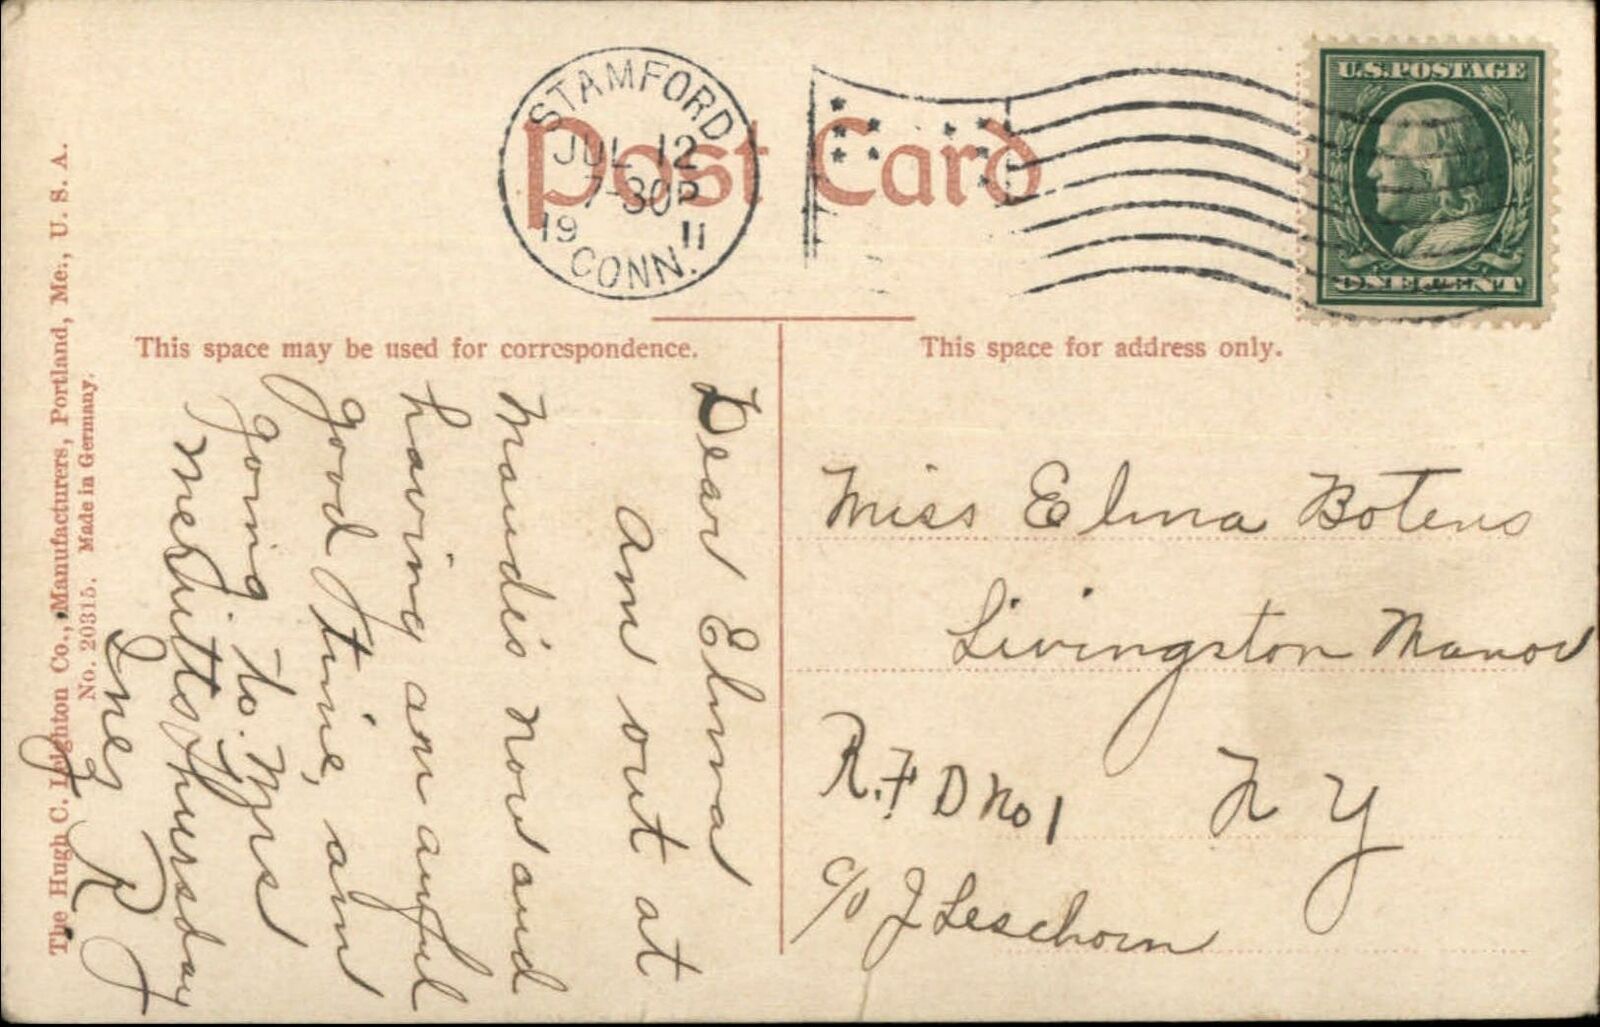 STAMFORD
JUL 12
7-30P
19 11
CONN.
Post Card
U.S. POSTAGE
ONE CENT
This space may be used for correspondence.
This space for address only.
Dear Elma
am out at
Maude's now and
having an awful
good time, am
going to Mrs
Merritts Thursday
Inez R
Miss Elma Botens
Livingston Manor
R.F D No 1 N Y
c/o J Leschorn
The Hugh C. Leighton Co., Manufacturers, Portland, Me., U. S. A.
No. 20315. Made in Germany.